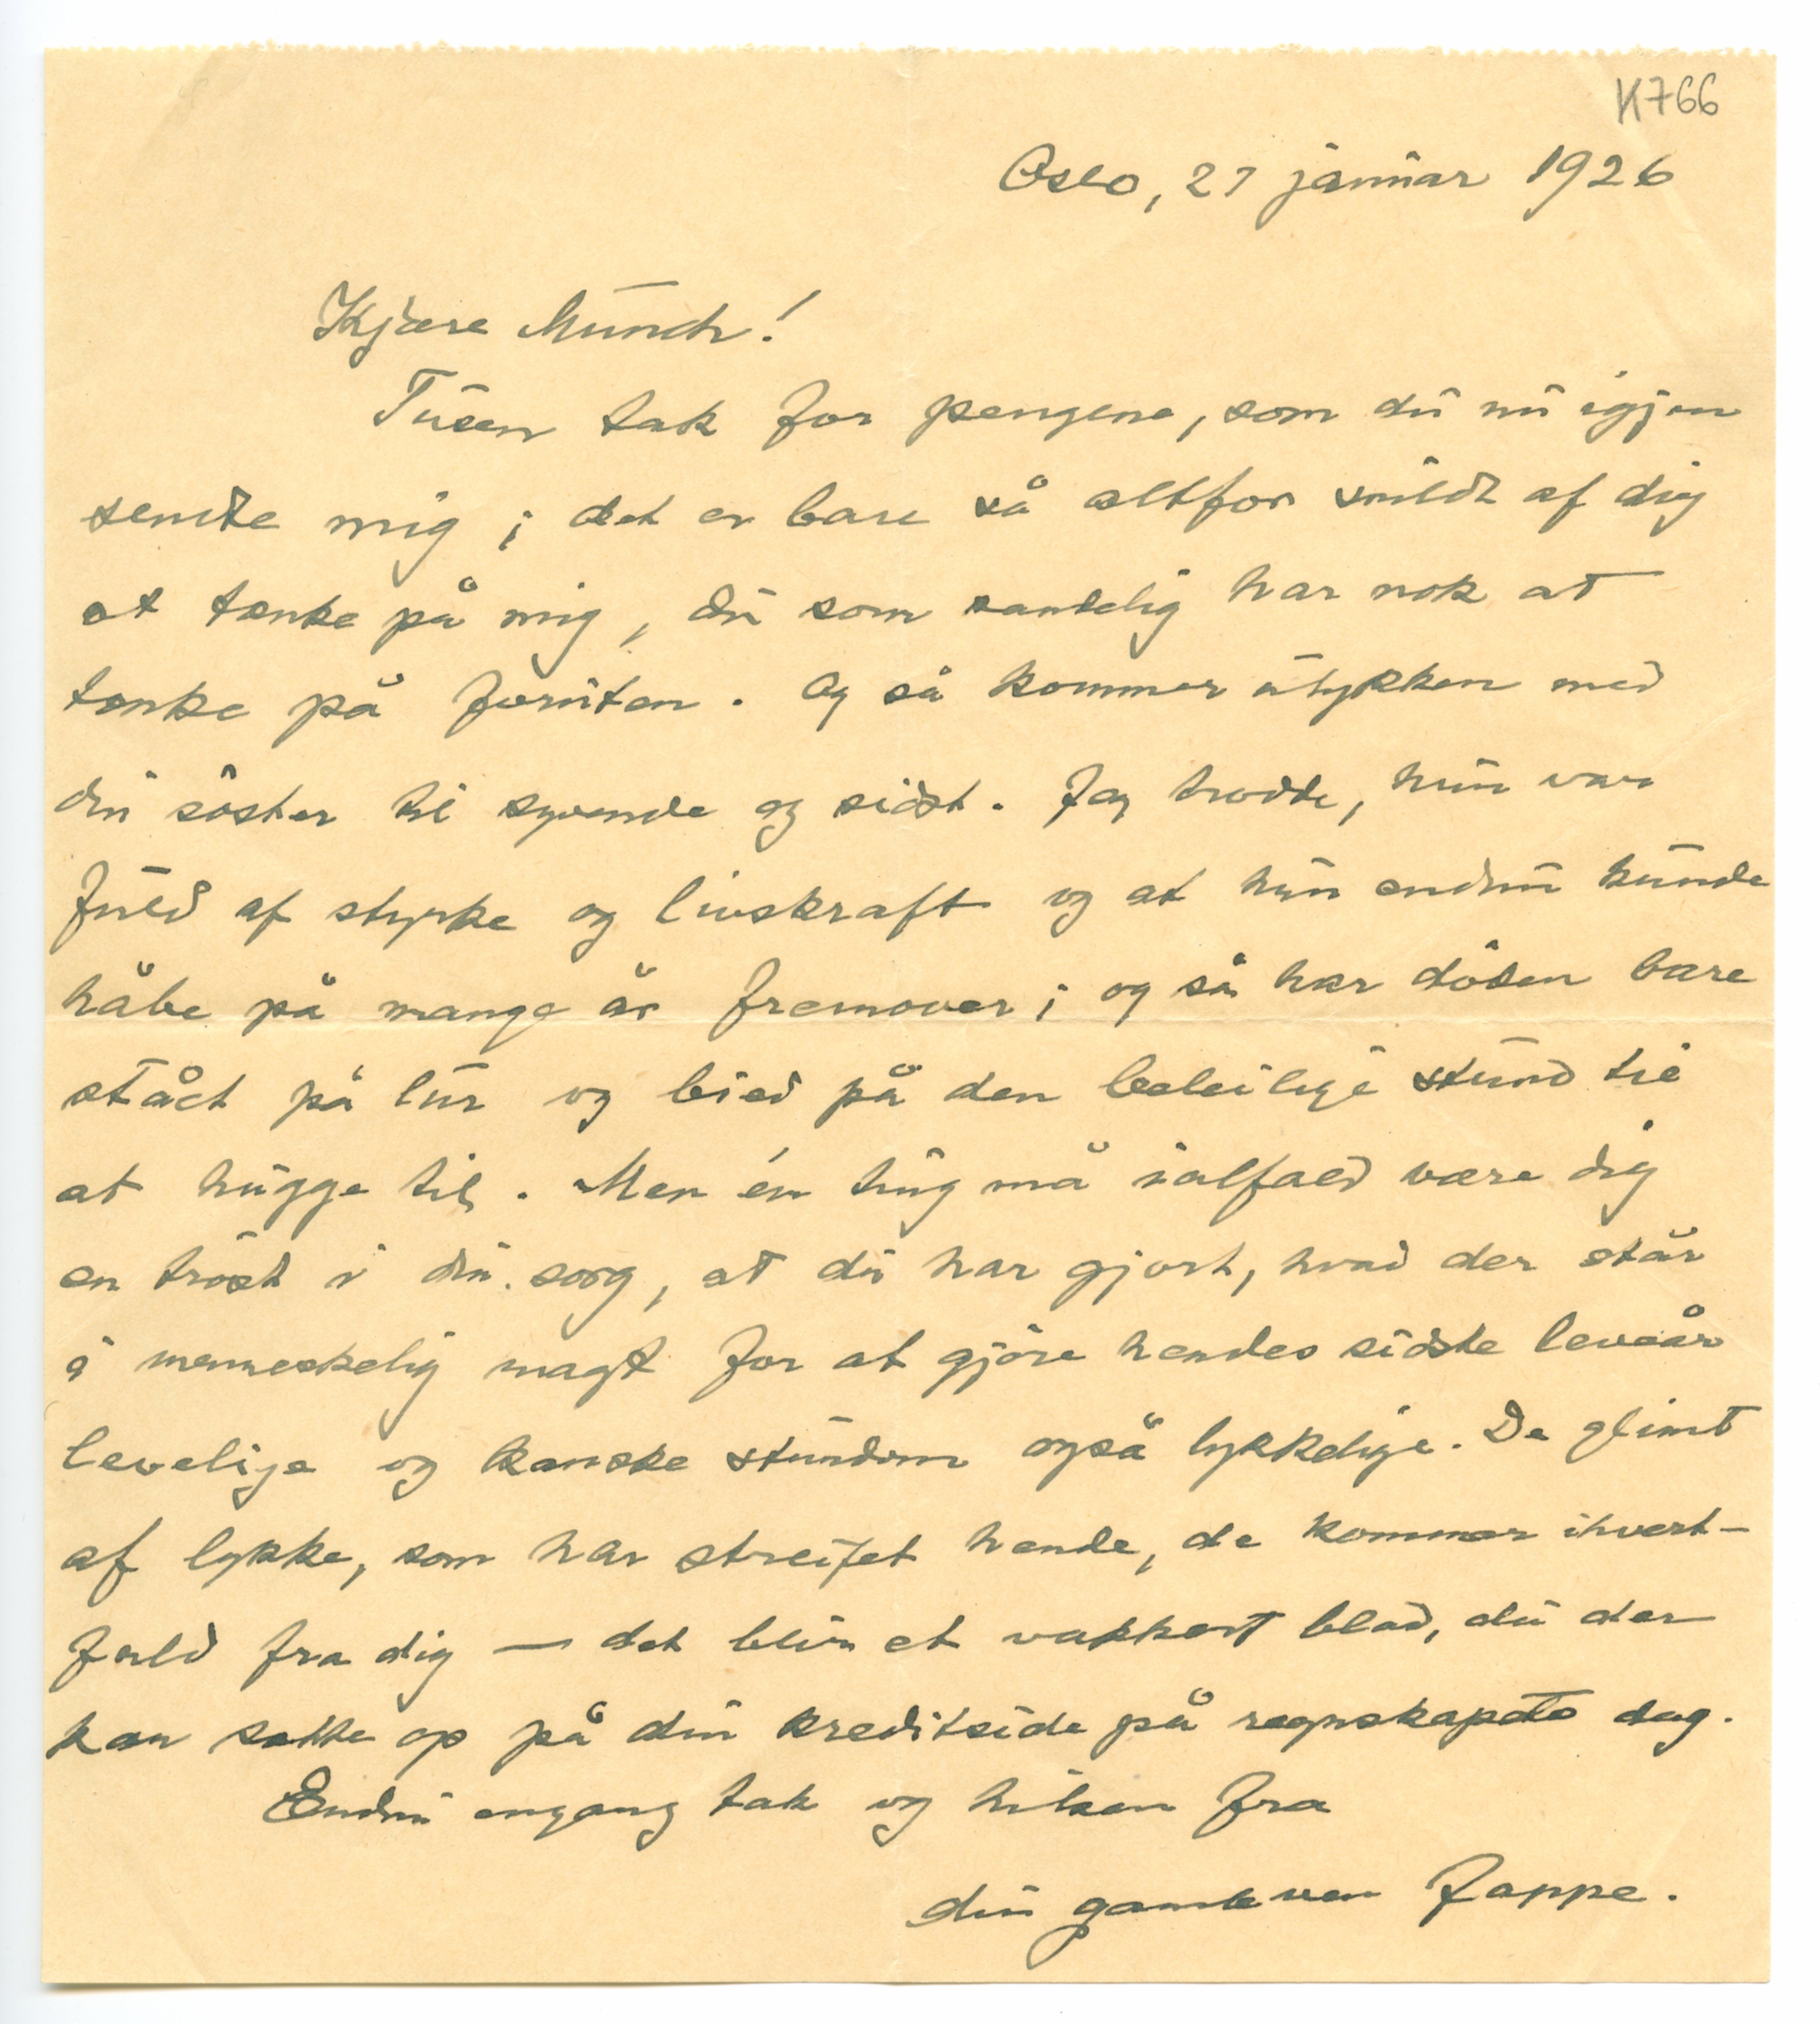 K766
Oslo, 27 januar 1926
Kjære Munch!
Tusen tak for pengene, som du nu igjen
sendte mig; det er bare så altfor snildt af dig
at tænke på mig, du som sandelig har nok at
tænke på foruten. Og så kommer ulykken med
din søster til syvende og sidst. Jeg trodde, hun var
fuld af styrke og livskraft og at hun endnu kunde
håbe på mange år fremover; og så har døden bare
stået på lur og biet på den beleilige stund til
at hugge til. Men én ting må ialfald være dig
en trøst i din sorg, at du har gjort, hvad der står
i menneskelig magt for at gjøre hendes sidste leveår
levelige og kanske stundom også lykkelige. De glimt
af lykke, som har streifet hende, de kommer ihvert-
fald fra dig — det blir et vakkert blad, du der
kan sætte op på din kreditside på regnskapets dag.
Endnu engang tak og hilsen fra
din gamle ven Jappe.